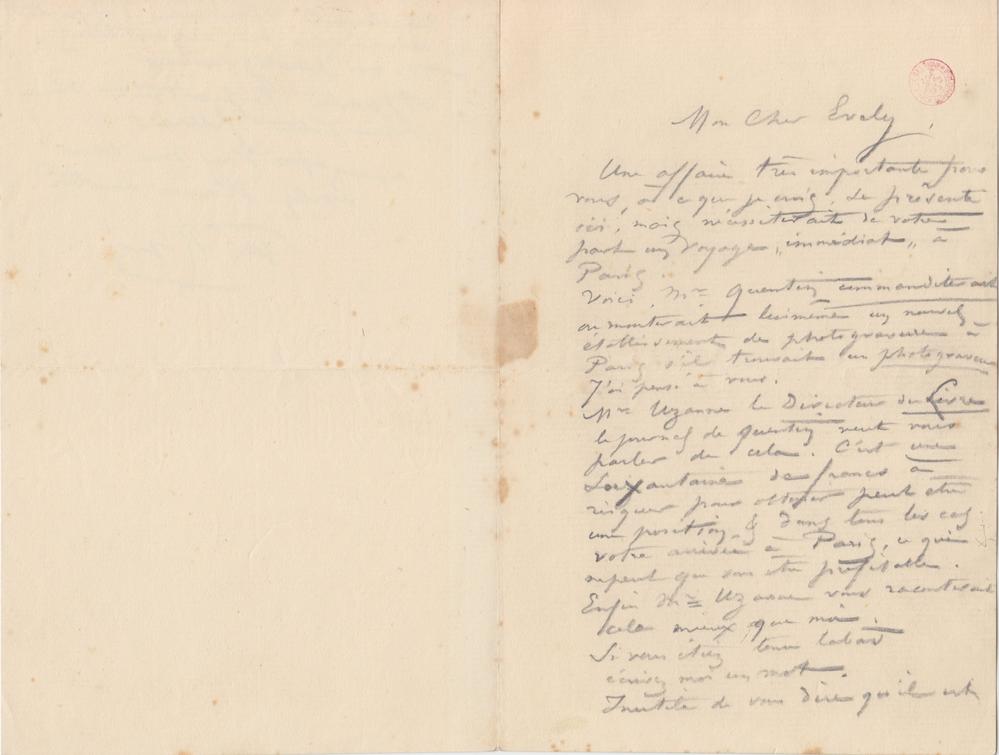 Mon Cher Evely,
Une affaire très importante pour
vous, à ce que je crois, se présente
ici, mais nécessiterait de votre
part un voyage "immédiat" à
Paris.
Voici, Mr Quentin commanditerait
ou monterait lui même un nouvel
établissement de photogravure à
Paris s'il trouvait un photograveur
J'ai pensé à vous.
Mr Uzanne le Directeur du Livre
le journal de Quentin veut vous
parler de cela. C'est une
Soixantaine de francs à
risquer pour obtenir peut etre
une position, & dans tous les cas
votre arrivée à Paris, ce qui
ne peut que vous etre profitable.
Enfin Mr Uzanne vous raconterait
cela mieux que moi.
Si vous étiez tenu labas
écrivez moi un mot.
Inutile de vous dire qu'il est